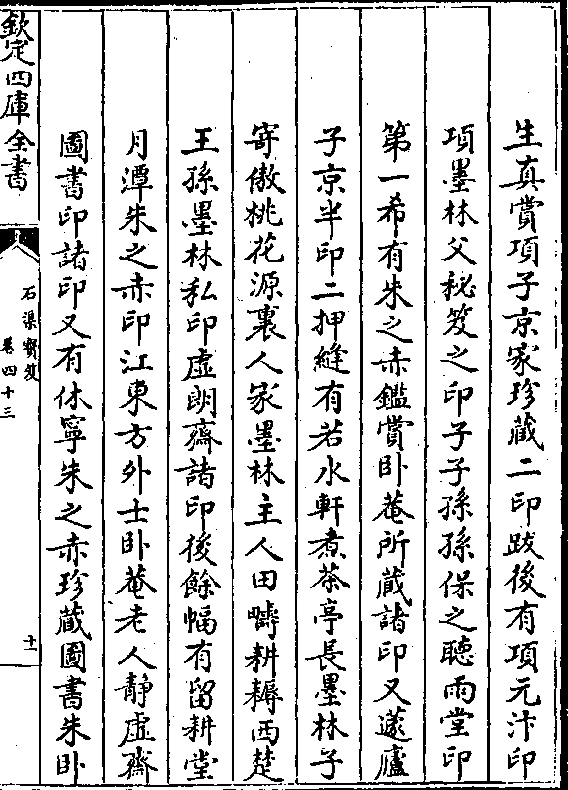 生真賞項子京家珍藏二印跋後有項元汴印
項墨林父秘笈之印子子孫孫保之聽雨堂印
第一希有朱之赤鑑賞卧菴所藏諸印又蘧廬
子京半印二押縫有若水軒煮茶亭長墨林子
寄傲桃花源裏人家墨林主人田疇耕耨西楚
王孫墨林私印虛朗齋諸印後餘幅有留耕堂
月潭朱之赤印江東方外士卧菴老人靜虛齋
圖書印諸印又有休寧朱之赤珍藏圖書朱卧
欽定四庫全書
石渠寳笈
卷四十三
十一